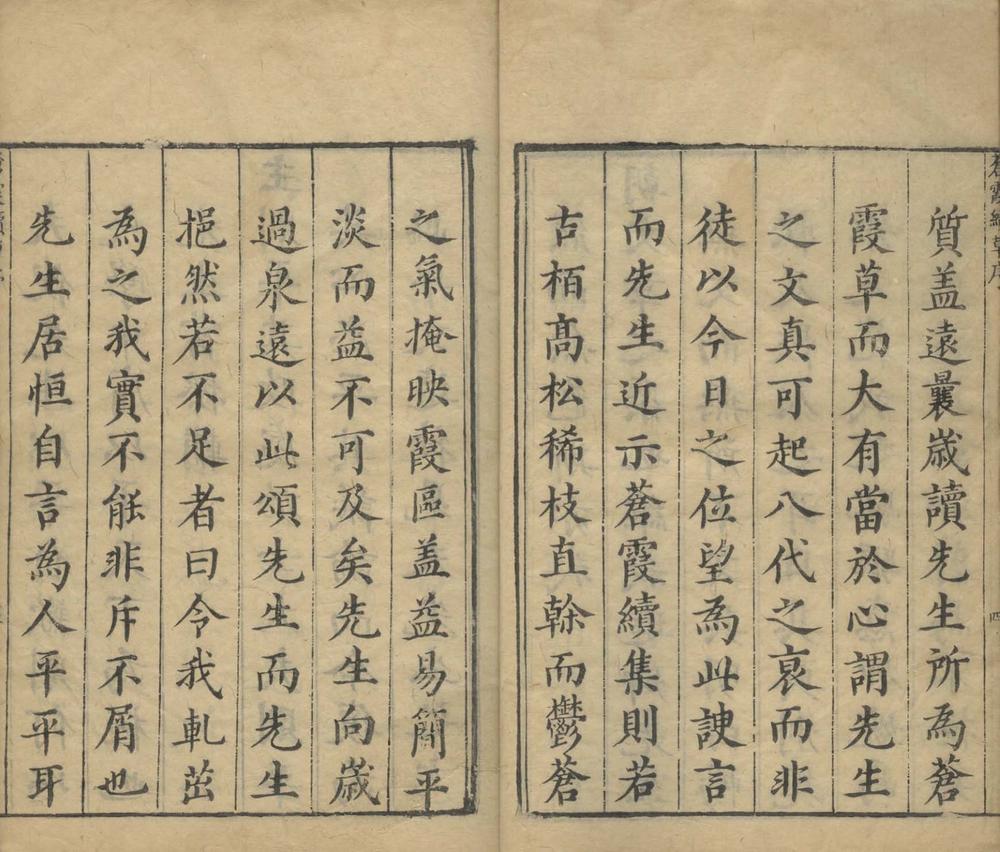 質盖遠曩歳讀先生所為蒼
霞草而大有當於心謂先生
之文真可起八代之衰而非
徒以今日之位望為此諛言
而先生近示蒼霞續集則若
古栢髙松稀枝直榦而鬱蒼
之氣掩映霞區盖益易簡平
淡而益不可及矣先生向歳
過泉遠以此頌先生而先生
挹然若不足者曰令我軋茁
為之我實不能非斥不屑也
先生居恒自言為人平平耳
四